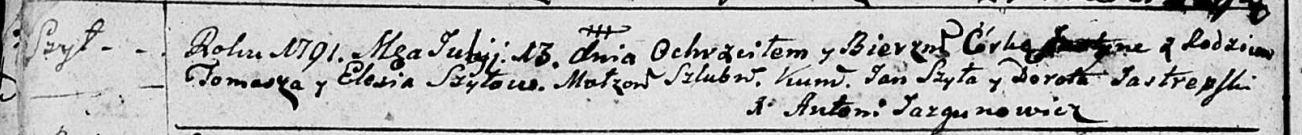 Szył - -
Roku 1791. Mca Julyj. 13. dnia Ochrzciłem y Bierzm Córkę Justynę z Rodziców
Tomasza y Elesia Szyłow. Małżon Szlubn. Kum. Jan Szyła y Dorota Jastrepski
X Antoni Jazgunowicz